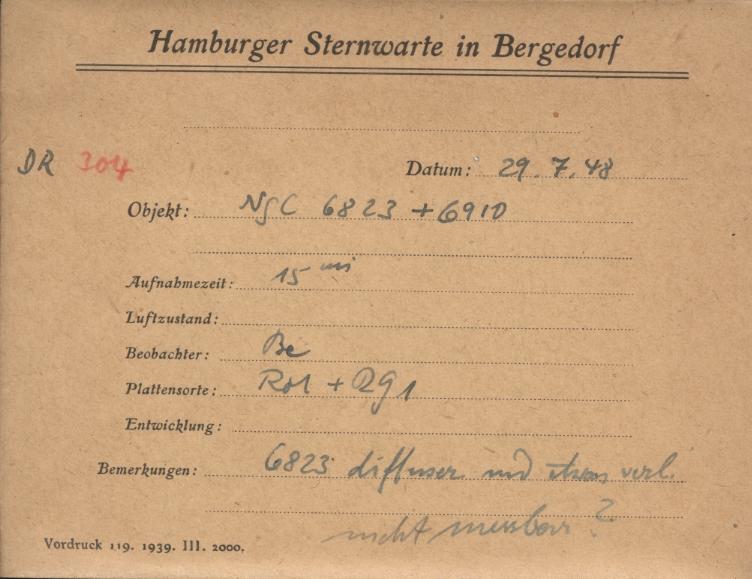 Hamburger Sternwarte in Bergedorf
DR 304
Datum: 29.7.48
Objekt: NGC 6823 + 6910
Aufnahmezeit: 15 min
Luftzustand:
Beobachter: Be
Plattensorte: Rot + RG1
Entwicklung:
Bemerkungen: 6823 diffuser und etwas verl.
nicht messbar?
Vordruck 119. 1939. III. 2000.